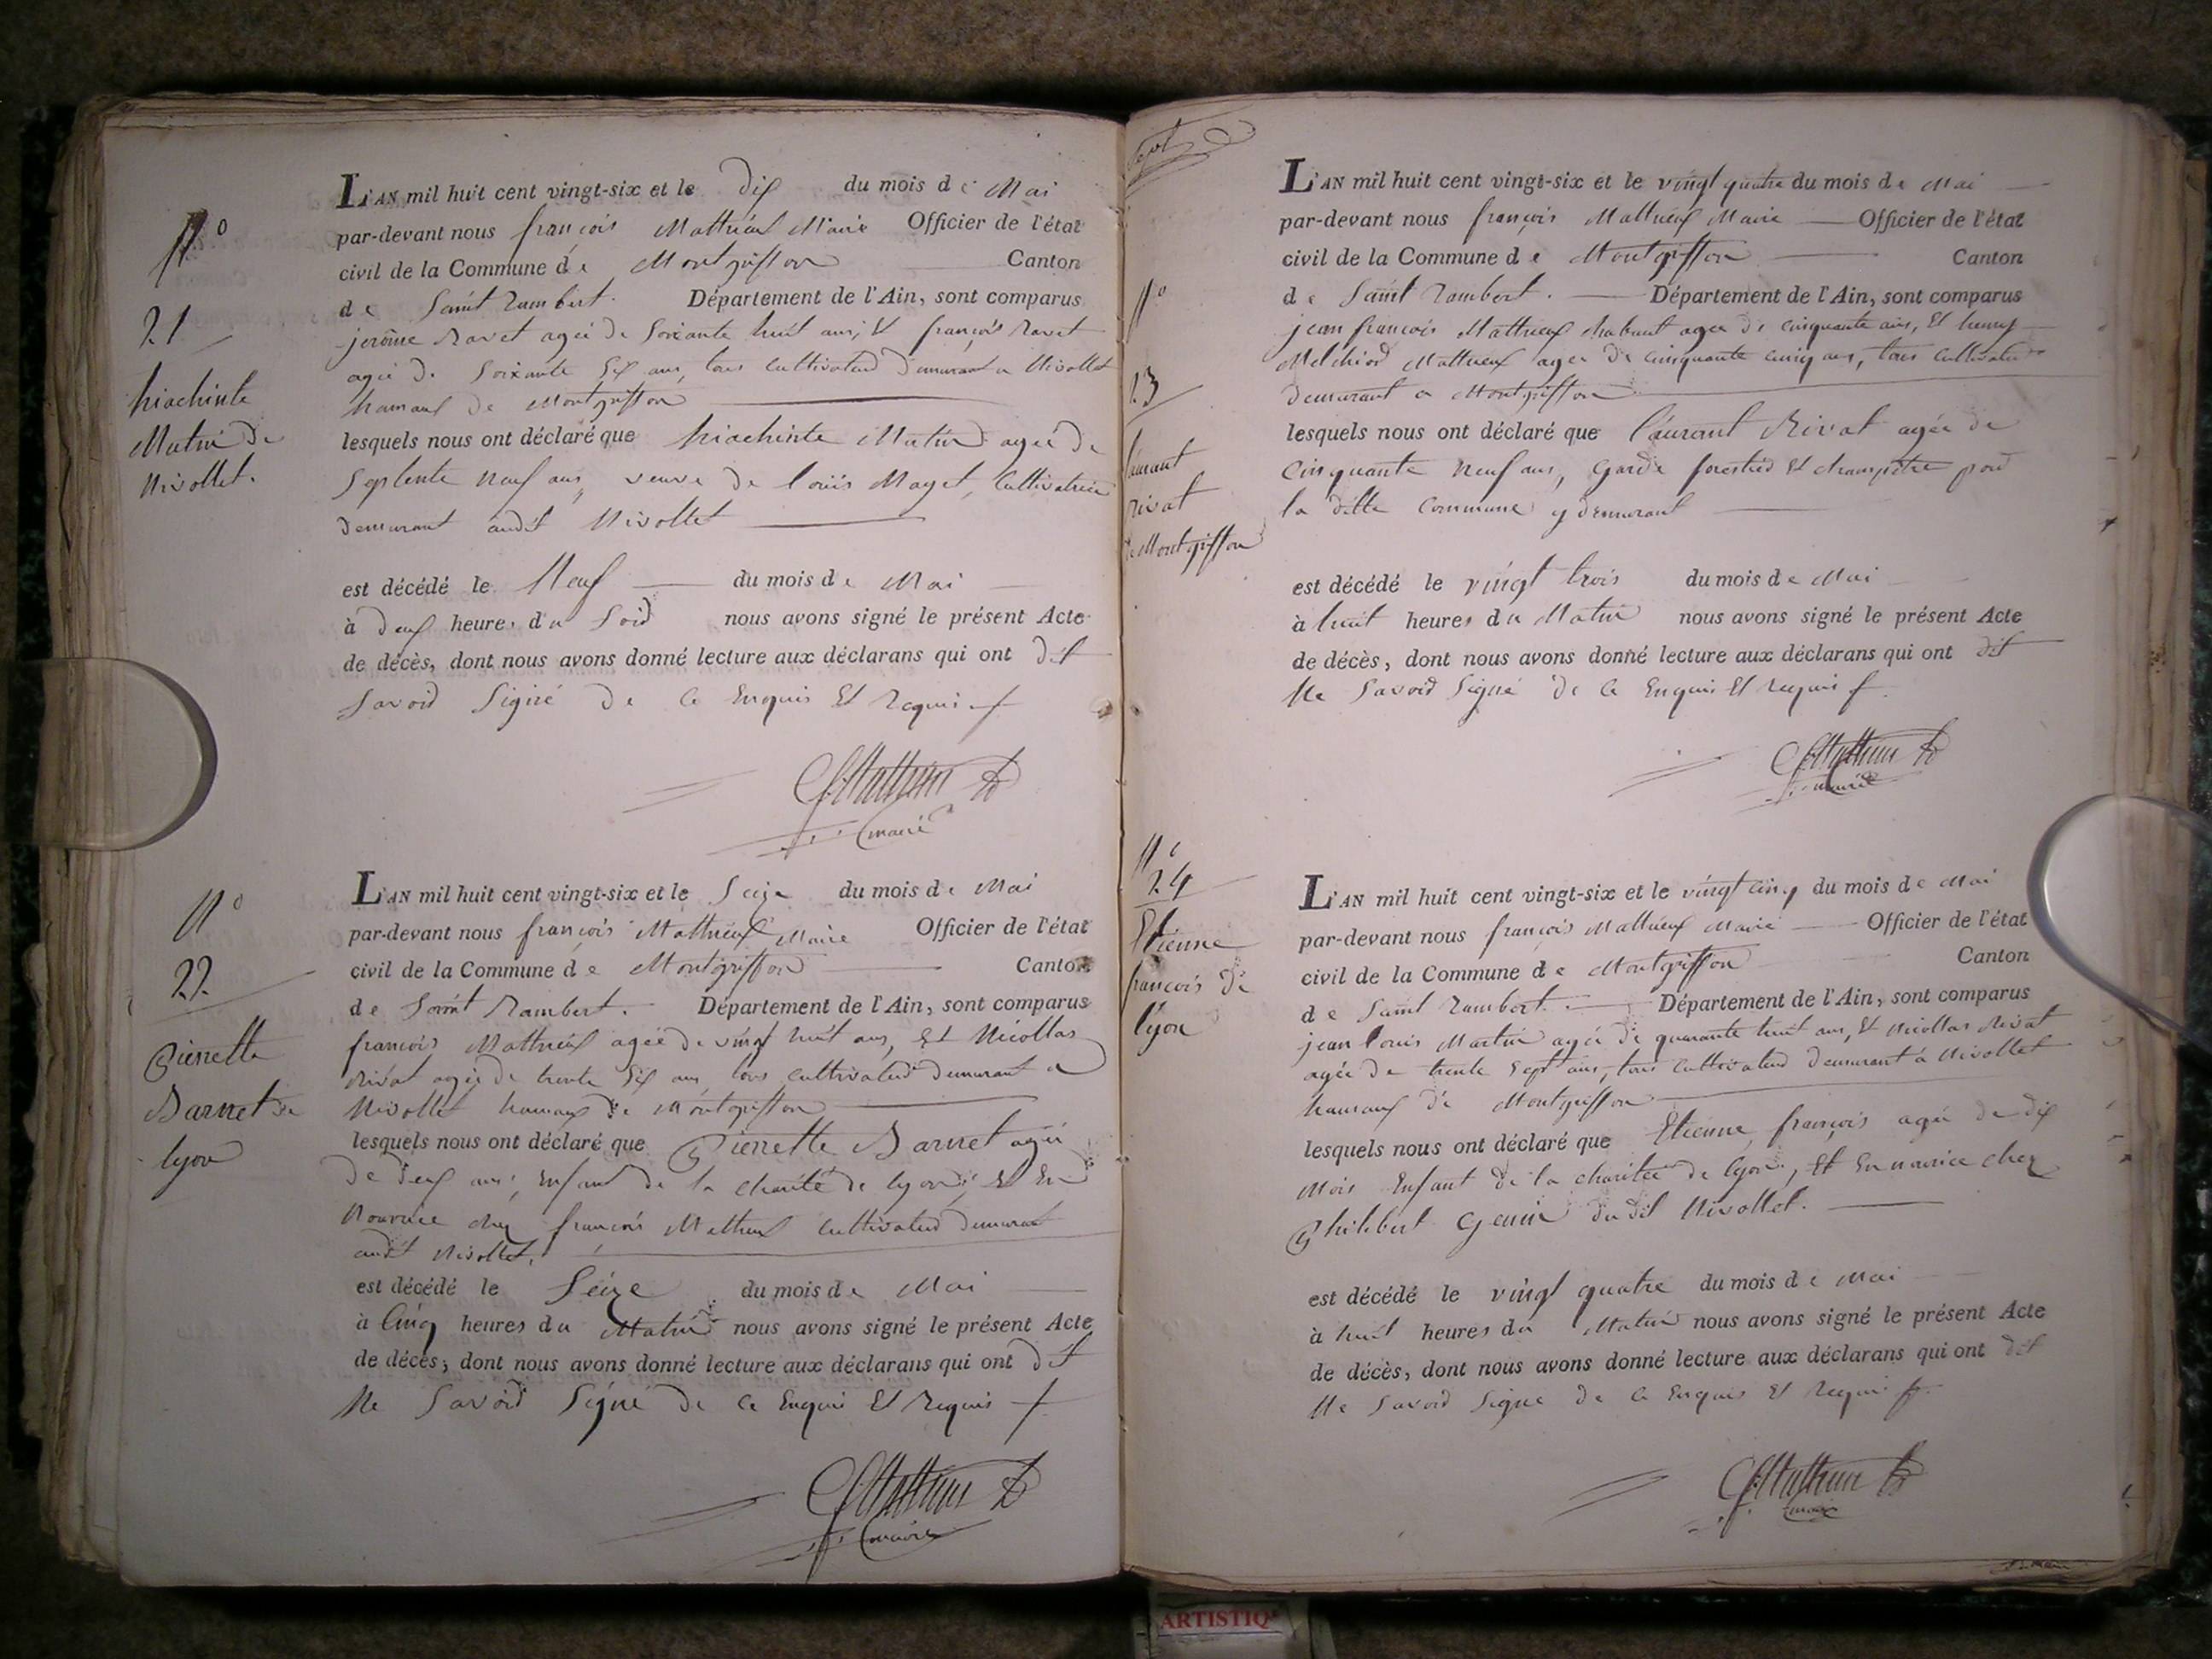 N°
21
hiachinte
Matin de
Nivollet.
L'AN mil huit cent vingt-six et le dix du mois de Mai
par-devant nous françois Matthieux Maire Officier de l'état
civil de la Commune de Montgriffon Canton
de Saint Rambert. Département de l'Ain, sont comparus
jerôme Ravet agée de soixante huit ans, Et françois Ravet
agée de soixante six ans, tous cultivateur demurant a Nivollet
hamaux de Montgriffon
lesquels nous ont déclaré que hiachinte Matin agée de
Septente neuf ans, veuve de louis Maget, Cultivatrice
demurant audit Nivollet
est décédé le Neuf du mois de Mai
à deux heures du Soir nous avons signé le présent Acte
de décès, dont nous avons donné lecture aux déclarans qui ont dit
Savoir Signé de ce Enquis Et Requis
maire
N°
22
Pierrette
Barnet de
lyon
L'AN mil huit cent vingt-six et le Seize du mois de Mai
par-devant nous françois Matthieux Maire Officier de l'état
civil de la Commune de Montgriffon Canton
de Saint Rambert. Département de l'Ain, sont comparus
françois Mathieux agée de vingt huit ans, Et Nicollas
Rivat agée de trente six ans tous cultivateur demurant a
Nivollet hamaux de Montgriffon
lesquels nous ont déclaré que Pierrette Barnet agée
de deux ans, Enfant de la charité de lyon, Et En
Nourrice chez françois Matheux cultivateur demurant
audit Nivollet.
est décédé le Seize du mois de Mai
à Cinq heures du Matin nous avons signé le présent Acte
de décès, dont nous avons donné lecture aux déclarans qui ont dit
Ne Savoir Signé de ce Enquis Et Requis
maire
N°
23
laurant
rivat
de Montgriffon
L'AN mil huit cent vingt-six et le vingt quatre du mois de Mai
par-devant nous françois Mathieux Maire Officier de l'état
civil de la Commune de Montgriffon Canton
de Saint Rambert. Département de l'Ain, sont comparus
jean françois Matthieux agée de cinquante ans, Et
Melchior Mathieux agée de cinquante cinq ans, tous cultivateur
demurant a Montgriffon
lesquels nous ont déclaré que laurant Rivat agée de
Cinquante Neuf ans, Garde forestier Et champetre pour
la ditte Commune y demurant
est décédé le vingt trois du mois de Mai
à huit heures du Matin nous avons signé le présent Acte
de décès, dont nous avons donné lecture aux déclarans qui ont dit
Ne Savoir Signé de ce Enquis Et requis
maire
N°
24
Etienne
françois de
lyon
L'AN mil huit cent vingt-six et le vingt cinq du mois de Mai
par-devant nous françois Mathieux Maire Officier de l'état
civil de la Commune de Montgriffon Canton
de Saint Rambert. Département de l'Ain, sont comparus
jean louis Martin agée de quarante huit ans, Et Nicollas Rivat
agée de trente sept ans, tous cultivateur demurant à Nivollet
hamaux de Montgriffon
lesquels nous ont déclaré que Etienne françois agée de dix
Mois Enfant de la charitée de lyon, Et En nourice chez
Philibert Genin dudit Nivollet.
est décédé le vingt quatre du mois de Mai
à huit heures du Matin nous avons signé le présent Acte
de décès, dont nous avons donné lecture aux déclarans qui ont dit
Ne Savoir Signé de ce Enquis Et requis
maire
ARTISTIQ